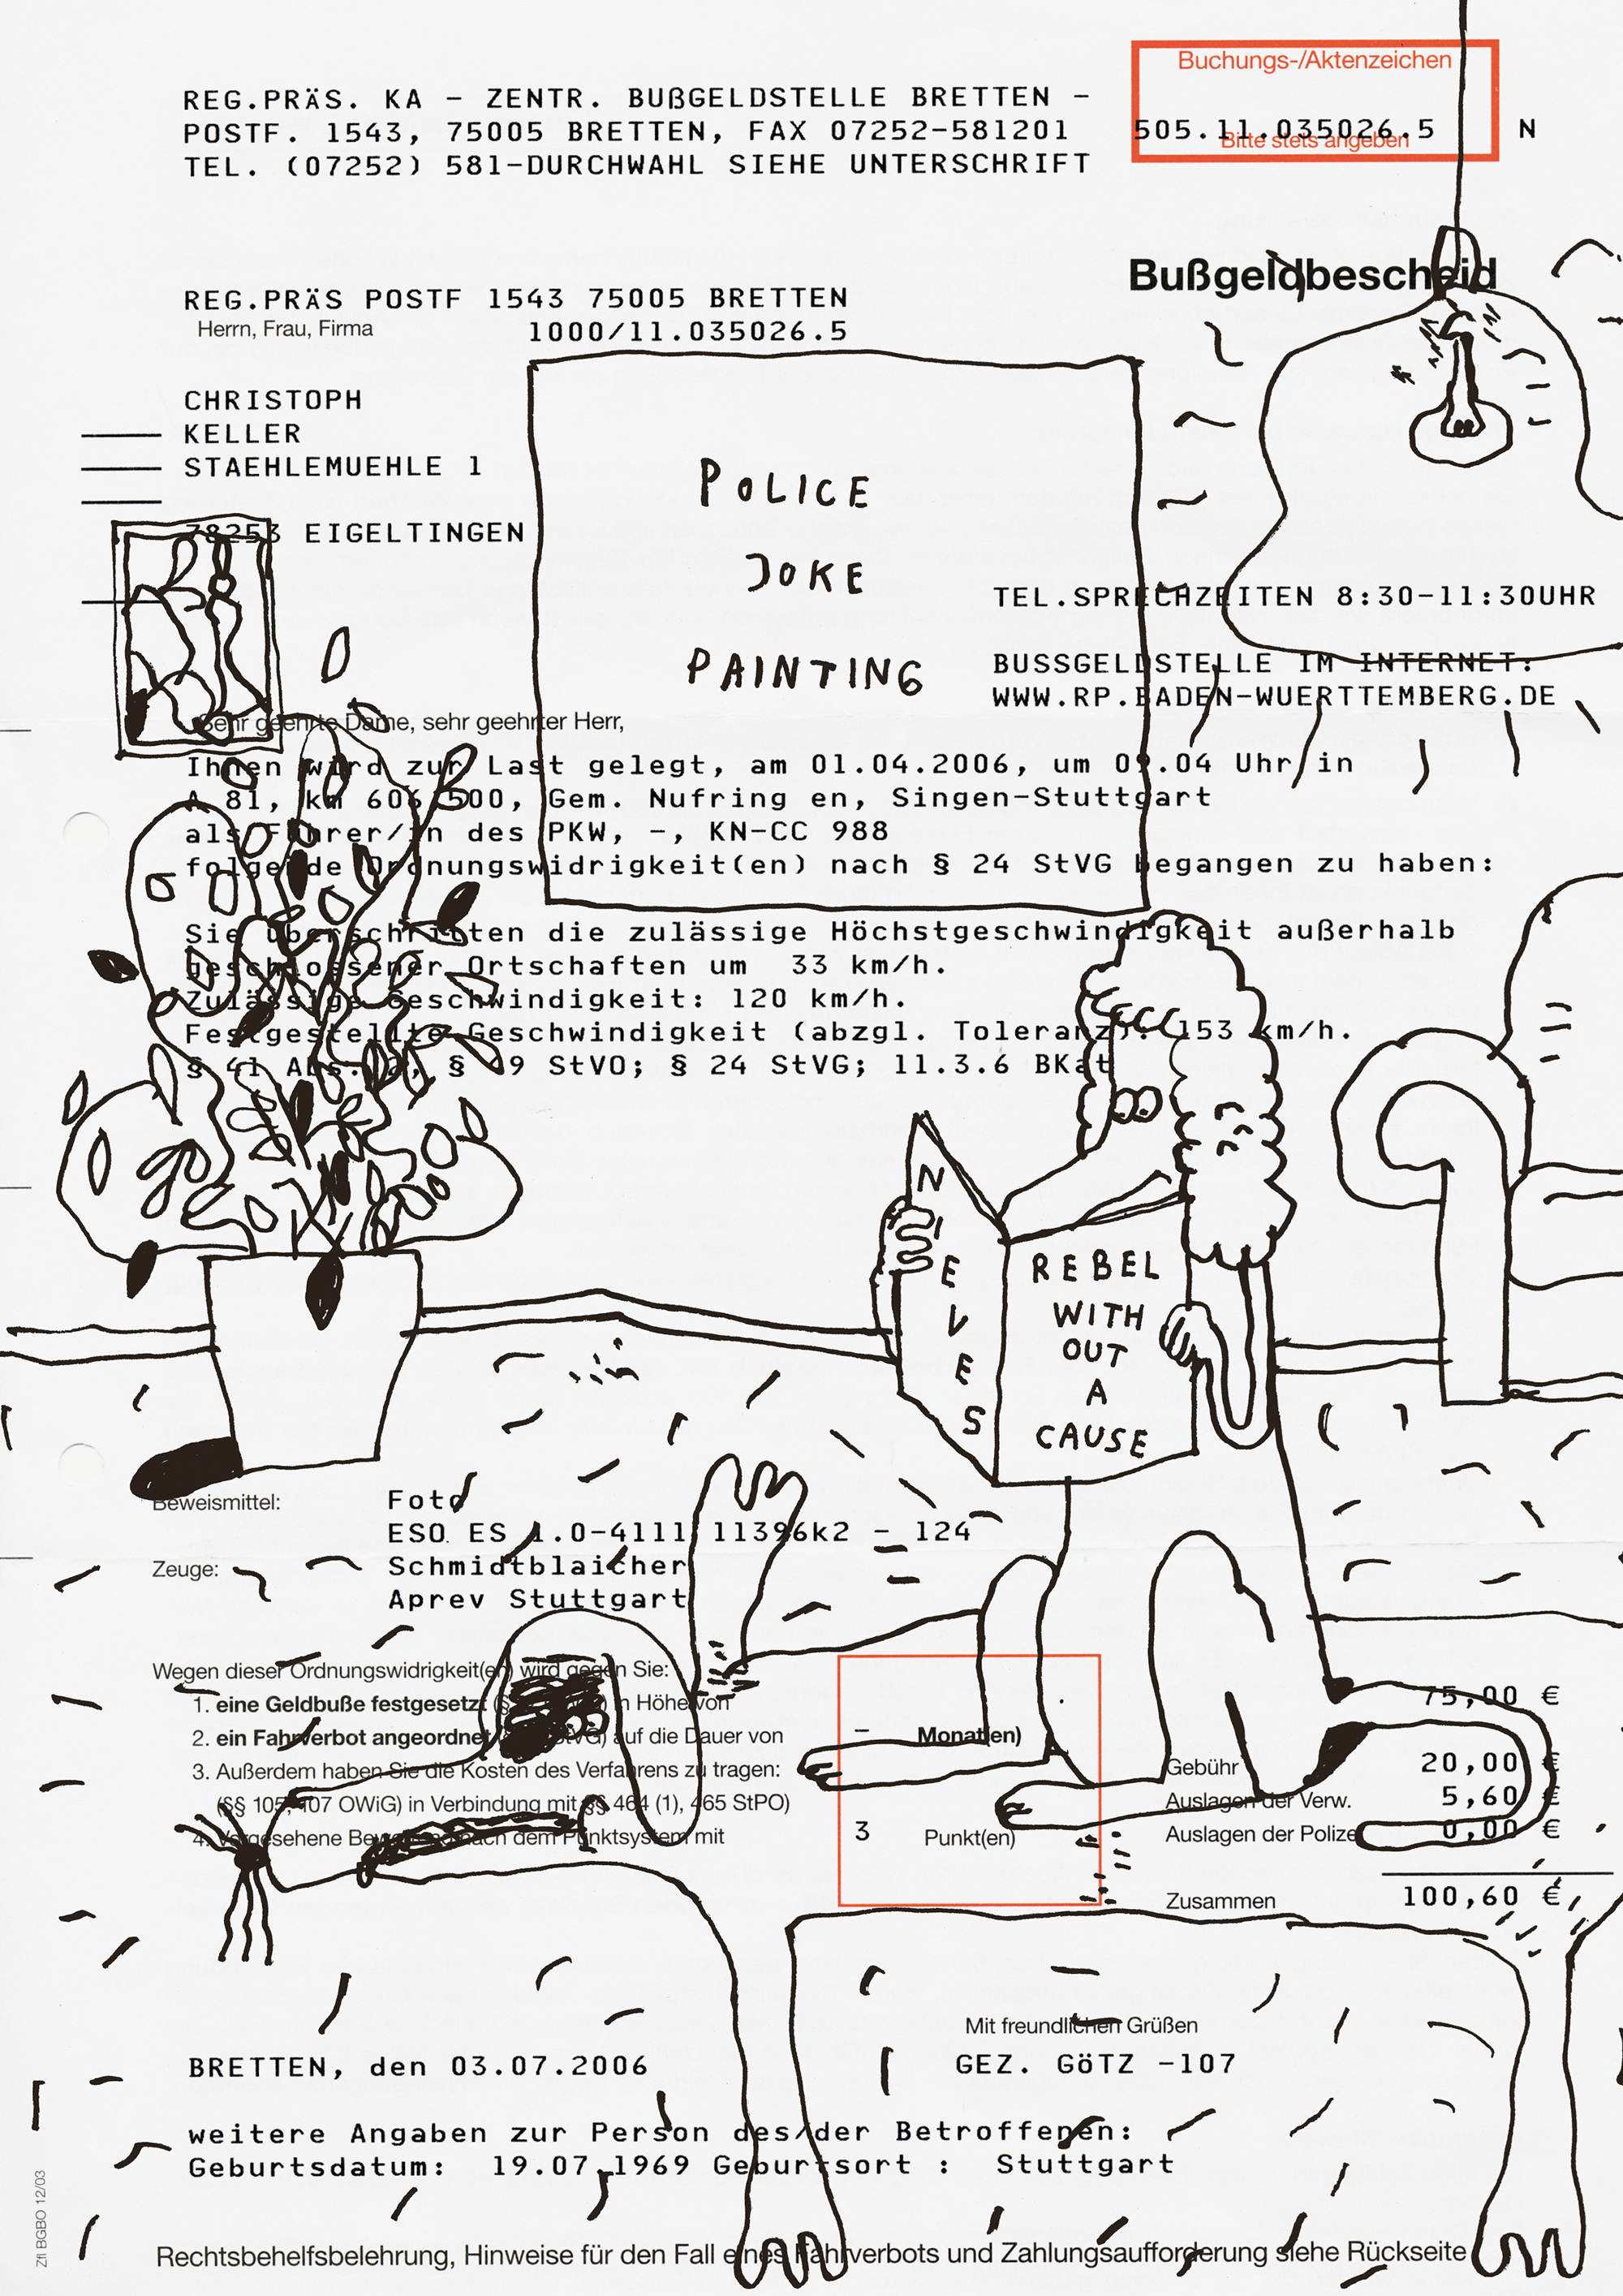 Buchungs-/Aktenzeichen
REG.PRÄS. KA - ZENTR. BUßGELDSTELLE BRETTEN -
POSTF. 1543, 75005 BRETTEN, FAX 07252-581201 505.11.035026.5 N
Bitte stets angeben
TEL. (07252) 581-DURCHWAHL SIEHE UNTERSCHRIFT
Bußgeldbescheid
REG.PRÄS POSTF 1543 75005 BRETTEN
Herrn, Frau, Firma 1000/11.035026.5
CHRISTOPH
KELLER
STAEHLEMUEHLE 1
78253 EIGELTINGEN
POLICE
JOKE
PAINTING
TEL.SPRECHZEITEN 8:30-11:30UHR
BUSSGELDSTELLE IM INTERNET:
WWW.RP.BADEN-WUERTTEMBERG.DE
Sehr geehrte Dame, sehr geehrter Herr,
Ihnen wird zur Last gelegt, am 01.04.2006, um 09.04 Uhr in
A 81, km 606,500, Gem. Nufring en, Singen-Stuttgart
als Führer/in des PKW, -, KN-CC 988
folgende Ordnungswidrigkeit(en) nach § 24 StVG begangen zu haben:
Sie überschritten die zulässige Höchstgeschwindigkeit außerhalb
geschlossener Ortschaften um 33 km/h.
Zulässige Geschwindigkeit: 120 km/h.
Festgestellte Geschwindigkeit (abzgl. Toleranz): 153 km/h.
§ 41 Abs. 2, § 49 StVO; § 24 StVG; 11.3.6 BKat
NIEVES
REBEL
WITH
OUT
A
CAUSE
Beweismittel: Foto
ESO ES 1.0-4111 11396k2 - 124
Zeuge: Schmidtblaicher
Aprev Stuttgart
Wegen dieser Ordnungswidrigkeit(en) wird gegen Sie:
1. eine Geldbuße festgesetzt in Höhe von 75,00 €
2. ein Fahrverbot angeordnet auf die Dauer von - Monat(en)
3. Außerdem haben Sie die Kosten des Verfahrens zu tragen: Gebühr 20,00 €
(§§ 105, 107 OWiG) in Verbindung mit §§ 464 (1), 465 StPO) Auslagen der Verw. 5,60 €
4. Vorgesehene Bewertung nach dem Punktsystem mit 3 Punkt(en) Auslagen der Polizei 0,00 €
Zusammen 100,60 €
Mit freundlichen Grüßen
BRETTEN, den 03.07.2006 GEZ. GÖTZ -107
weitere Angaben zur Person des/der Betroffenen:
Geburtsdatum: 19.07.1969 Geburtsort : Stuttgart
Rechtsbehelfsbelehrung, Hinweise für den Fall eines Fahrverbots und Zahlungsaufforderung siehe Rückseite
Zfl BGBO 12/03